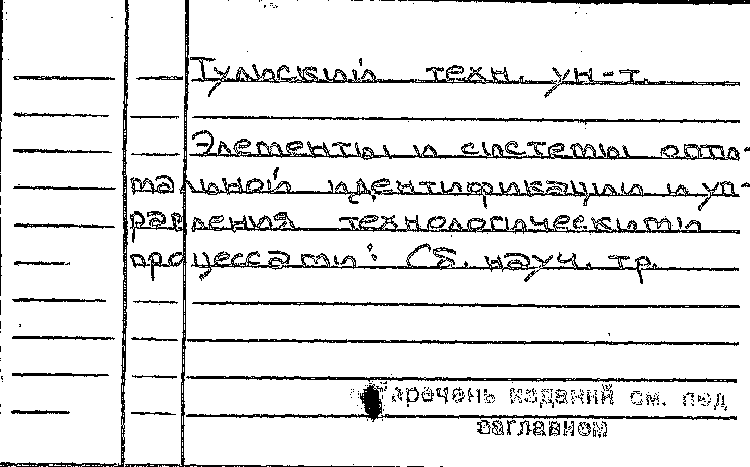 Тульский техн. ун-т.
Элементы и системы опти-
мальной идентификации и уп-
равления технологическими
процессами: Сб. науч. тр.
Перечень изданий см. под
заглавием